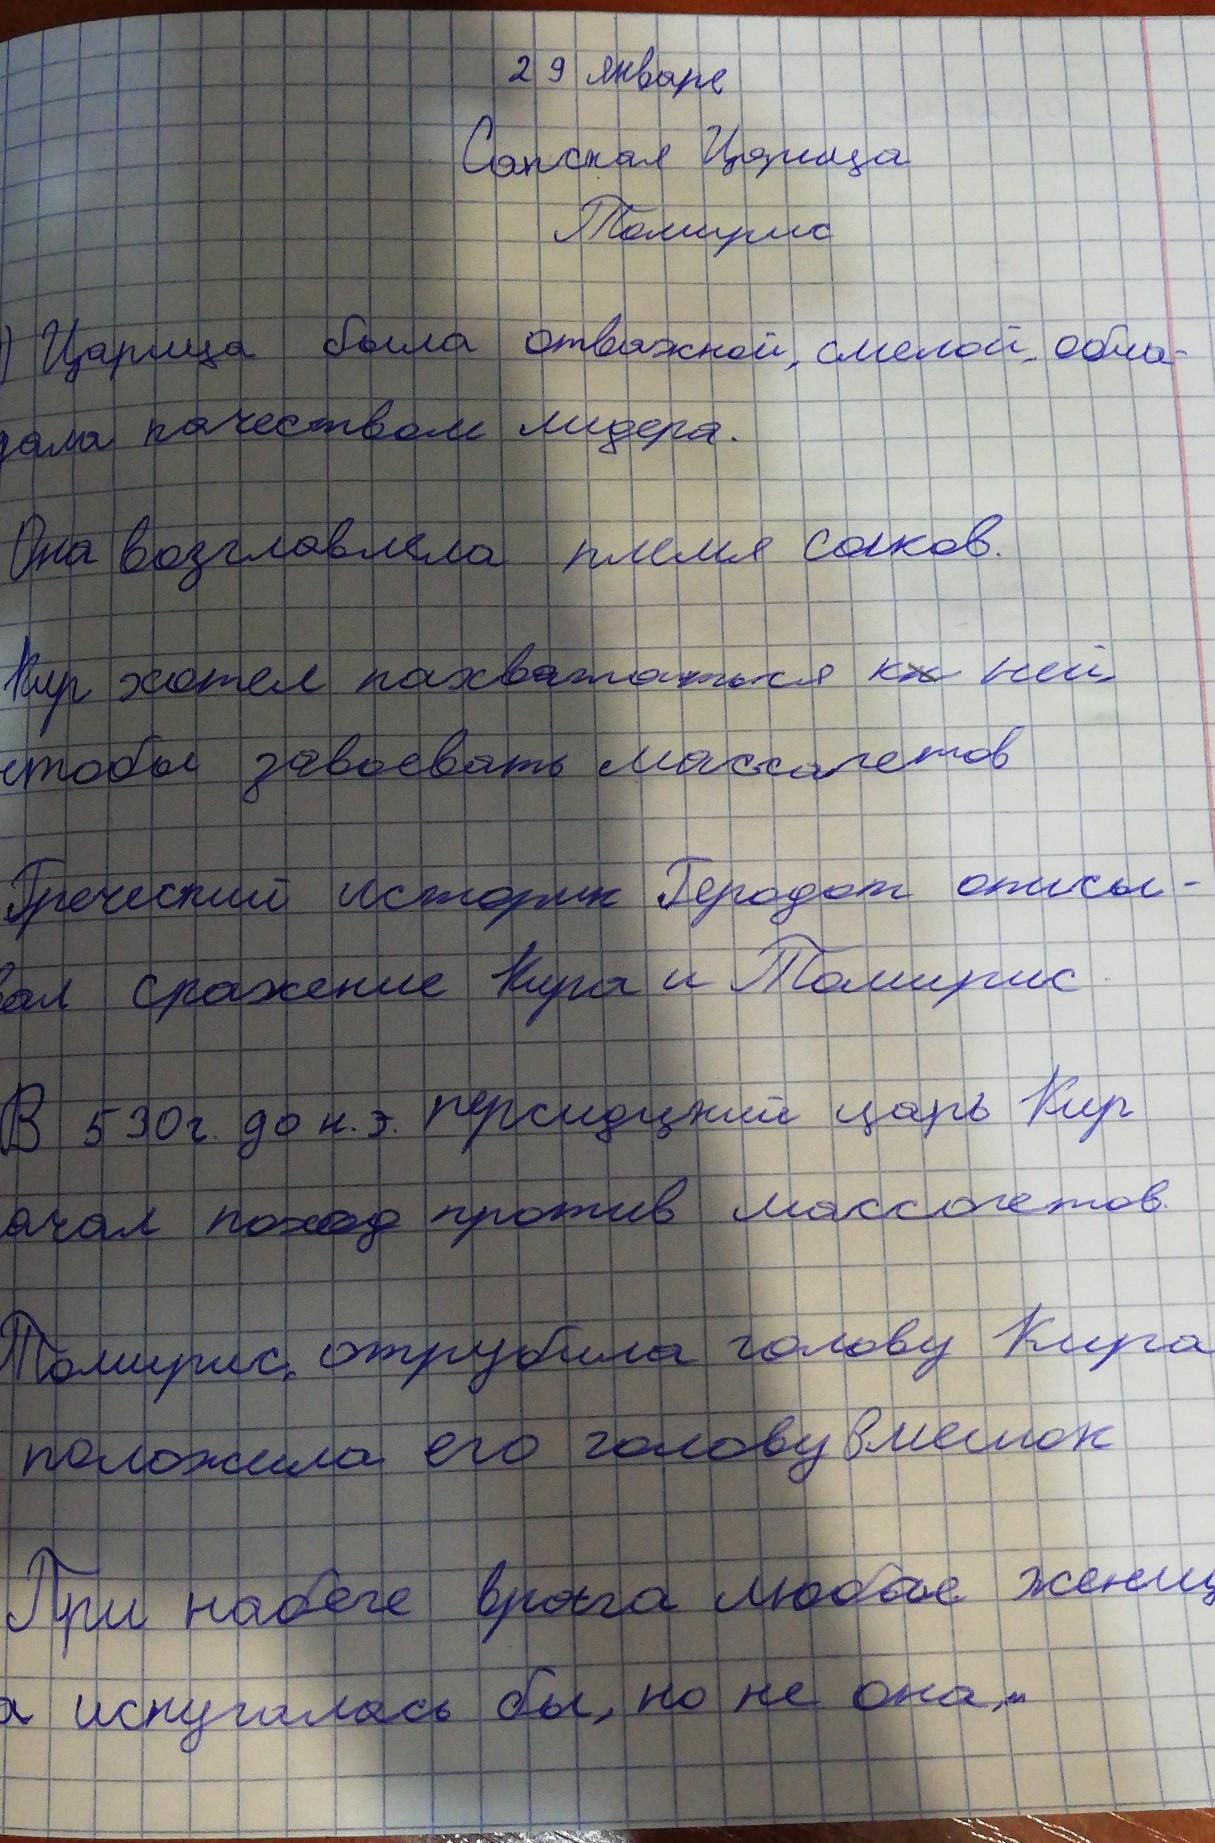 29 января
Сакская Царица
Томирис
) Царица была отважной, смелой, обла-
дала качеством лидера.
Она возглавлела племя саков.
Кир хотел пахвататься к ней
чтобы завоевать массагетов
Греческий историк Геродот описы-
вал сражение Кира и Томирис.
В 530г. до н.э. персидцкий царь Кир
ачал поход против массогетов.
Томирис, отрубила голову Кира
положила его голову в мешок
При набеге врага любое женщ
а испугалась бы, но не она,,